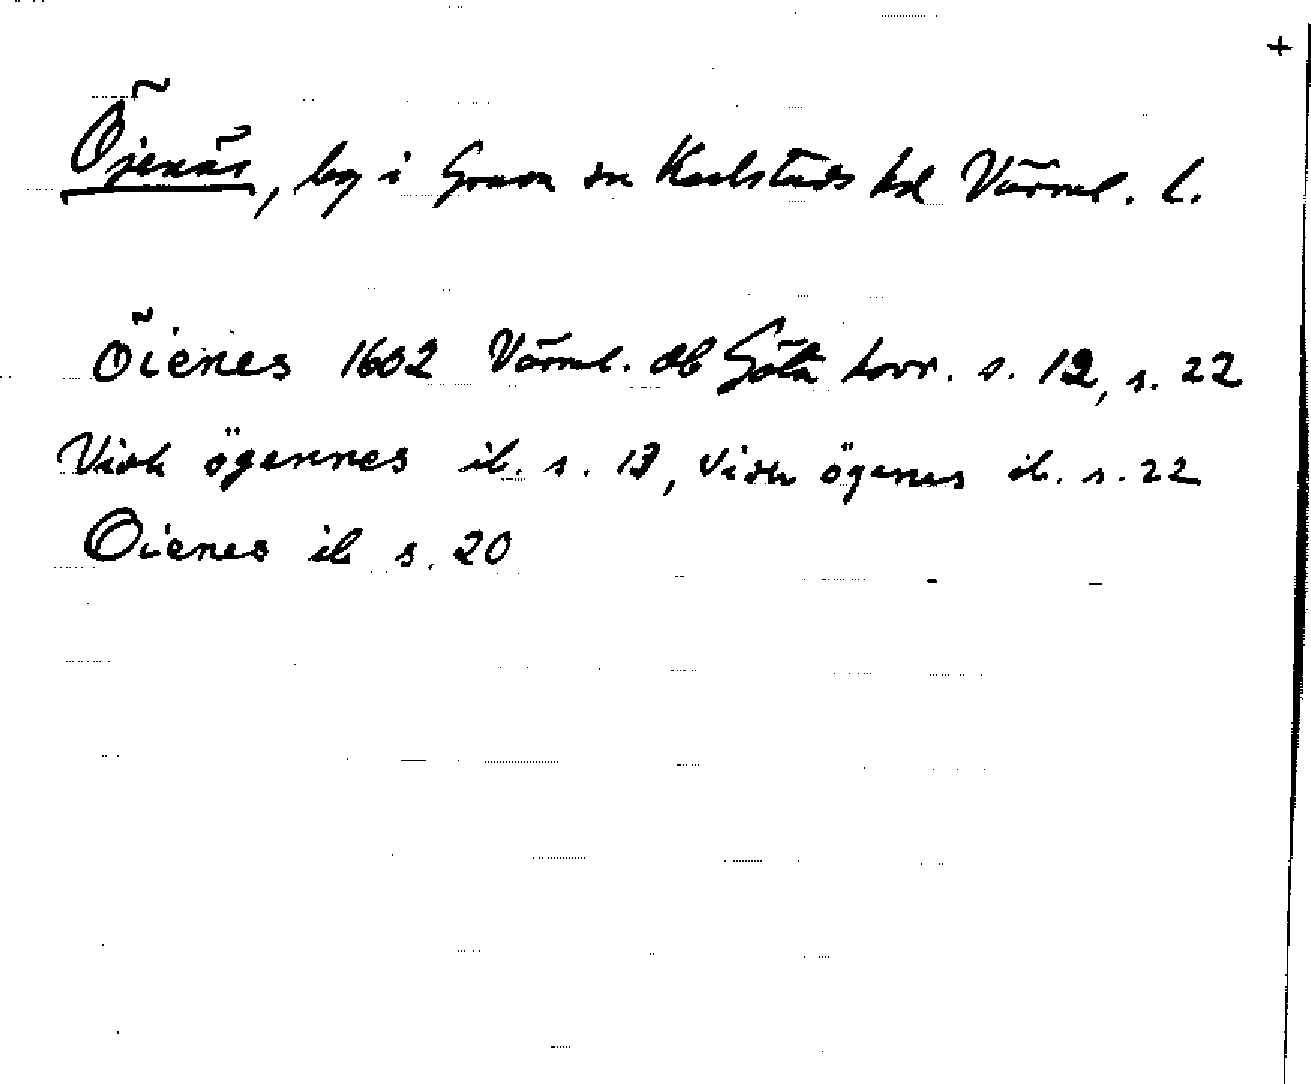 +
Öjenäs, by i Grava sn Karlstads hd Värml. l.
Öienes 1602 Värml. db Göta hovr. s. 12, s. 22
Visth ögennes ib. s. 13, Visth ögenes ib. s. 22
Öienes ib s. 20